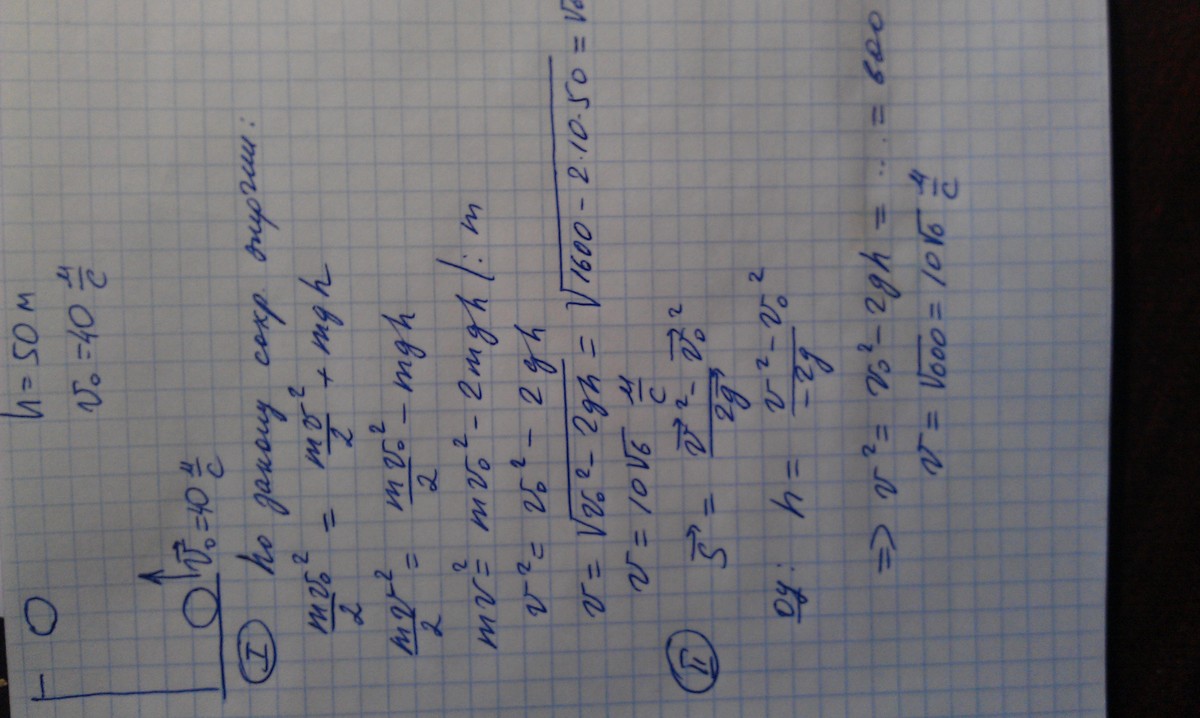 h = 50 м
v₀ = 40 м/с
v⃗₀ = 40 м/с
I по закону сохр. энергии:
mv₀²/2 = mv²/2 + mgh
mv²/2 = mv₀²/2 - mgh
mv² = mv₀² - 2mgh |: m
v² = v₀² - 2gh
v = √(v₀² - 2gh) = √(1600 - 2·10·50) =
v = 10√6 м/с
II S⃗ = (v⃗² - v⃗₀²)/2g⃗
оу: h = (v² - v₀²)/-2g
=> v² = v₀² - 2gh = ... = 600
v = √600 = 10√6 м/с